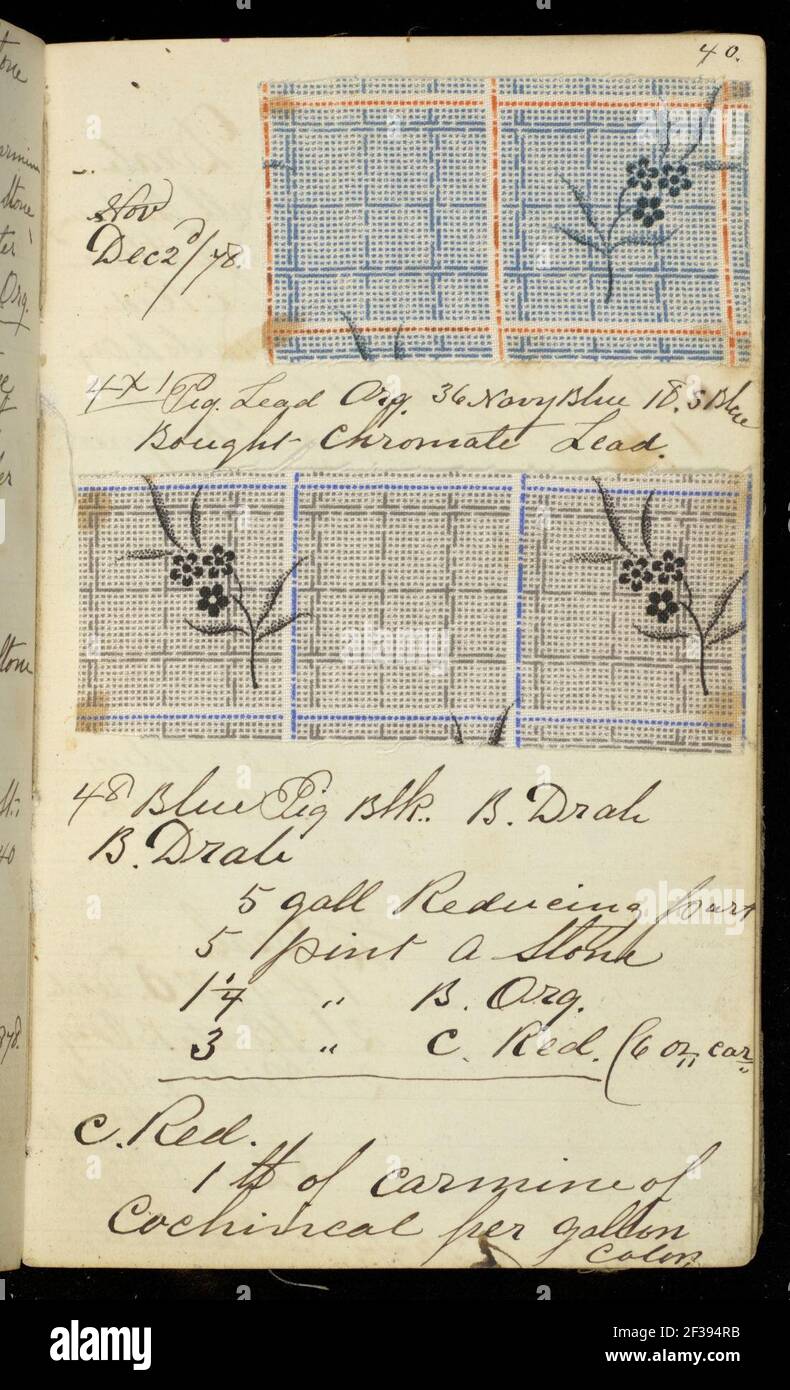 40.
Nov
Dec 2d/78.
Pig. Lead Org. 36 Navy Blue 18. S Blue
Bought Chromate Lead.
48 Blue Pig Blk. B. Drab
B. Drab
5 gall Reducing part
5 pint A Stone
1 1/4 " B. Org.
3 " C. Red. (6 oz car
C. Red.
1 lb of carmine of
Cochineal per gallon
Color
Stone
Org.
Stone
40
alamy
Image ID: 2F394RB
www.alamy.com